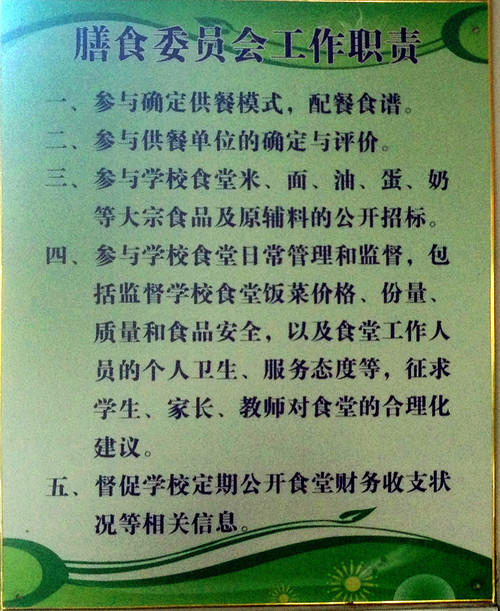 膳食委员会工作职责
一、参与确定供餐模式，配餐食谱。
二、参与供餐单位的确定与评价。
三、参与学校食堂米、面、油、蛋、奶
等大宗食品及原辅料的公开招标。
四、参与学校食堂日常管理和监督，包
括监督学校食堂饭菜价格、份量、
质量和食品安全，以及食堂工作人
员的个人卫生、服务态度等，征求
学生、家长、教师对食堂的合理化
建议。
五、督促学校定期公开食堂财务收支状
况等相关信息。